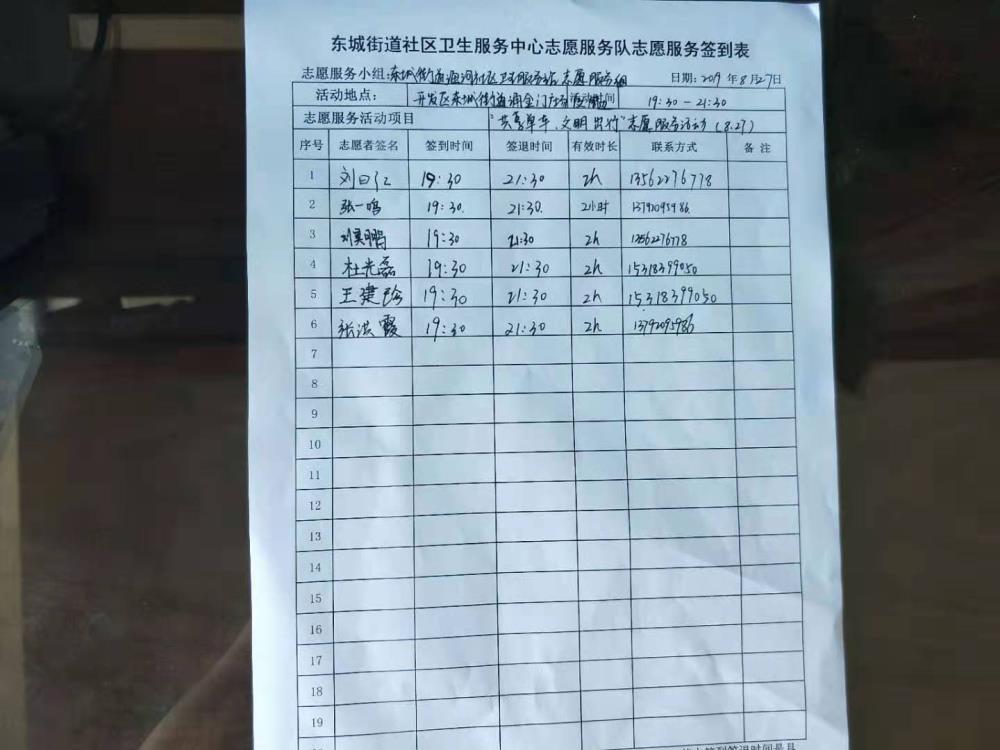 东城街道社区卫生服务中心志愿服务队志愿服务签到表
志愿服务小组:东城街道海河社区卫生服务站志愿服务组 日期:2019年8月27日
活动地点: 开发区东城街道 活动时间 19:30-21:30
志愿服务活动项目 "共享单车、文明出行"志愿服务活动(8.27)
序号 志愿者签名 签到时间 签退时间 有效时长 联系方式 备注
1 19:30 21:30 2h 13562276778
2 张一鸣 19:30. 21:30. 2小时
3 19:30 21:30 2h 13562276778
4 杜光磊 19:30 21:30 2h 15318399050
5 王建 19:30 21:30 2h 15318399050
6 张洪霞 19:30 21:30 2h
7
8
9
10
11
12
13
14
15
16
17
18
19